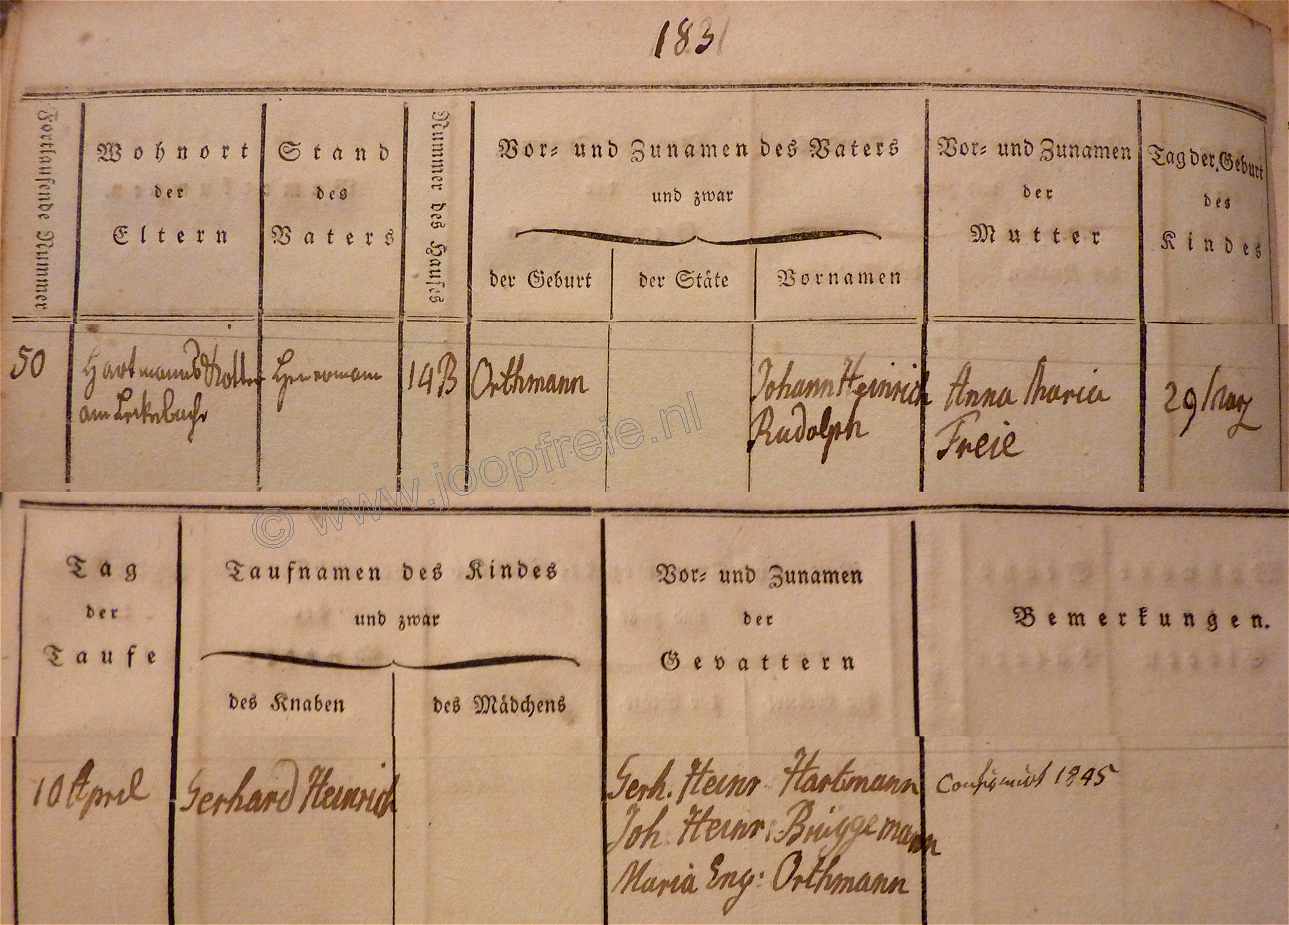 1831
Fortlaufende Nummer
Wohnort
der
Eltern
Stand
des
Vaters
Nummer des Hauses
Vor- und Zunamen des Vaters
und zwar
der Geburt
der Stäte
Vornamen
Vor- und Zunamen
der
Mutter
Tag der Geburt
des
Kindes
50
Hartmanns Kotten
am Leckebach
Heuermann
14B
Orthmann
Johann Heinrich
Rudolph
Anna Maria
Freie
29 März
© www.joopfreie.nl
Tag
der
Taufe
Taufnamen des Kindes
und zwar
des Knaben
des Mädchens
Vor- und Zunamen
der
Gevattern
Bemerkungen.
10 April
Gerhard Heinrich
Gerh. Heinr Hartmann
Joh. Heinr: Brüggemann
Maria Eng: Orthmann
Confirmirt 1845